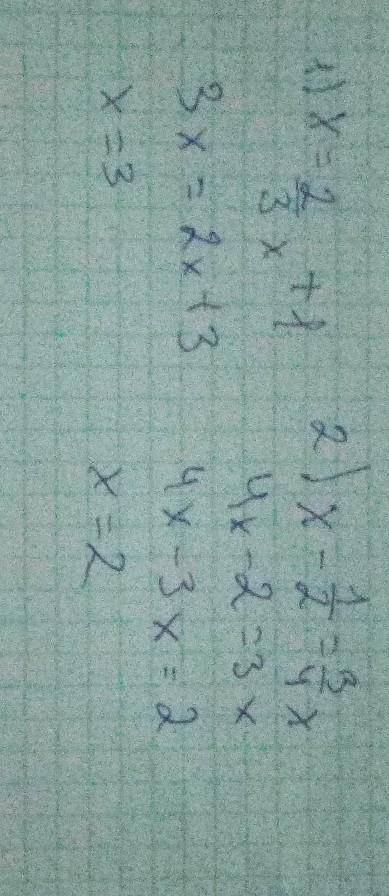 1) x = 2/3 x + 1
3x = 2x + 3
x = 3
2) x - 1/2 = 3/4 x
4x - 2 = 3x
4x - 3x = 2
x = 2